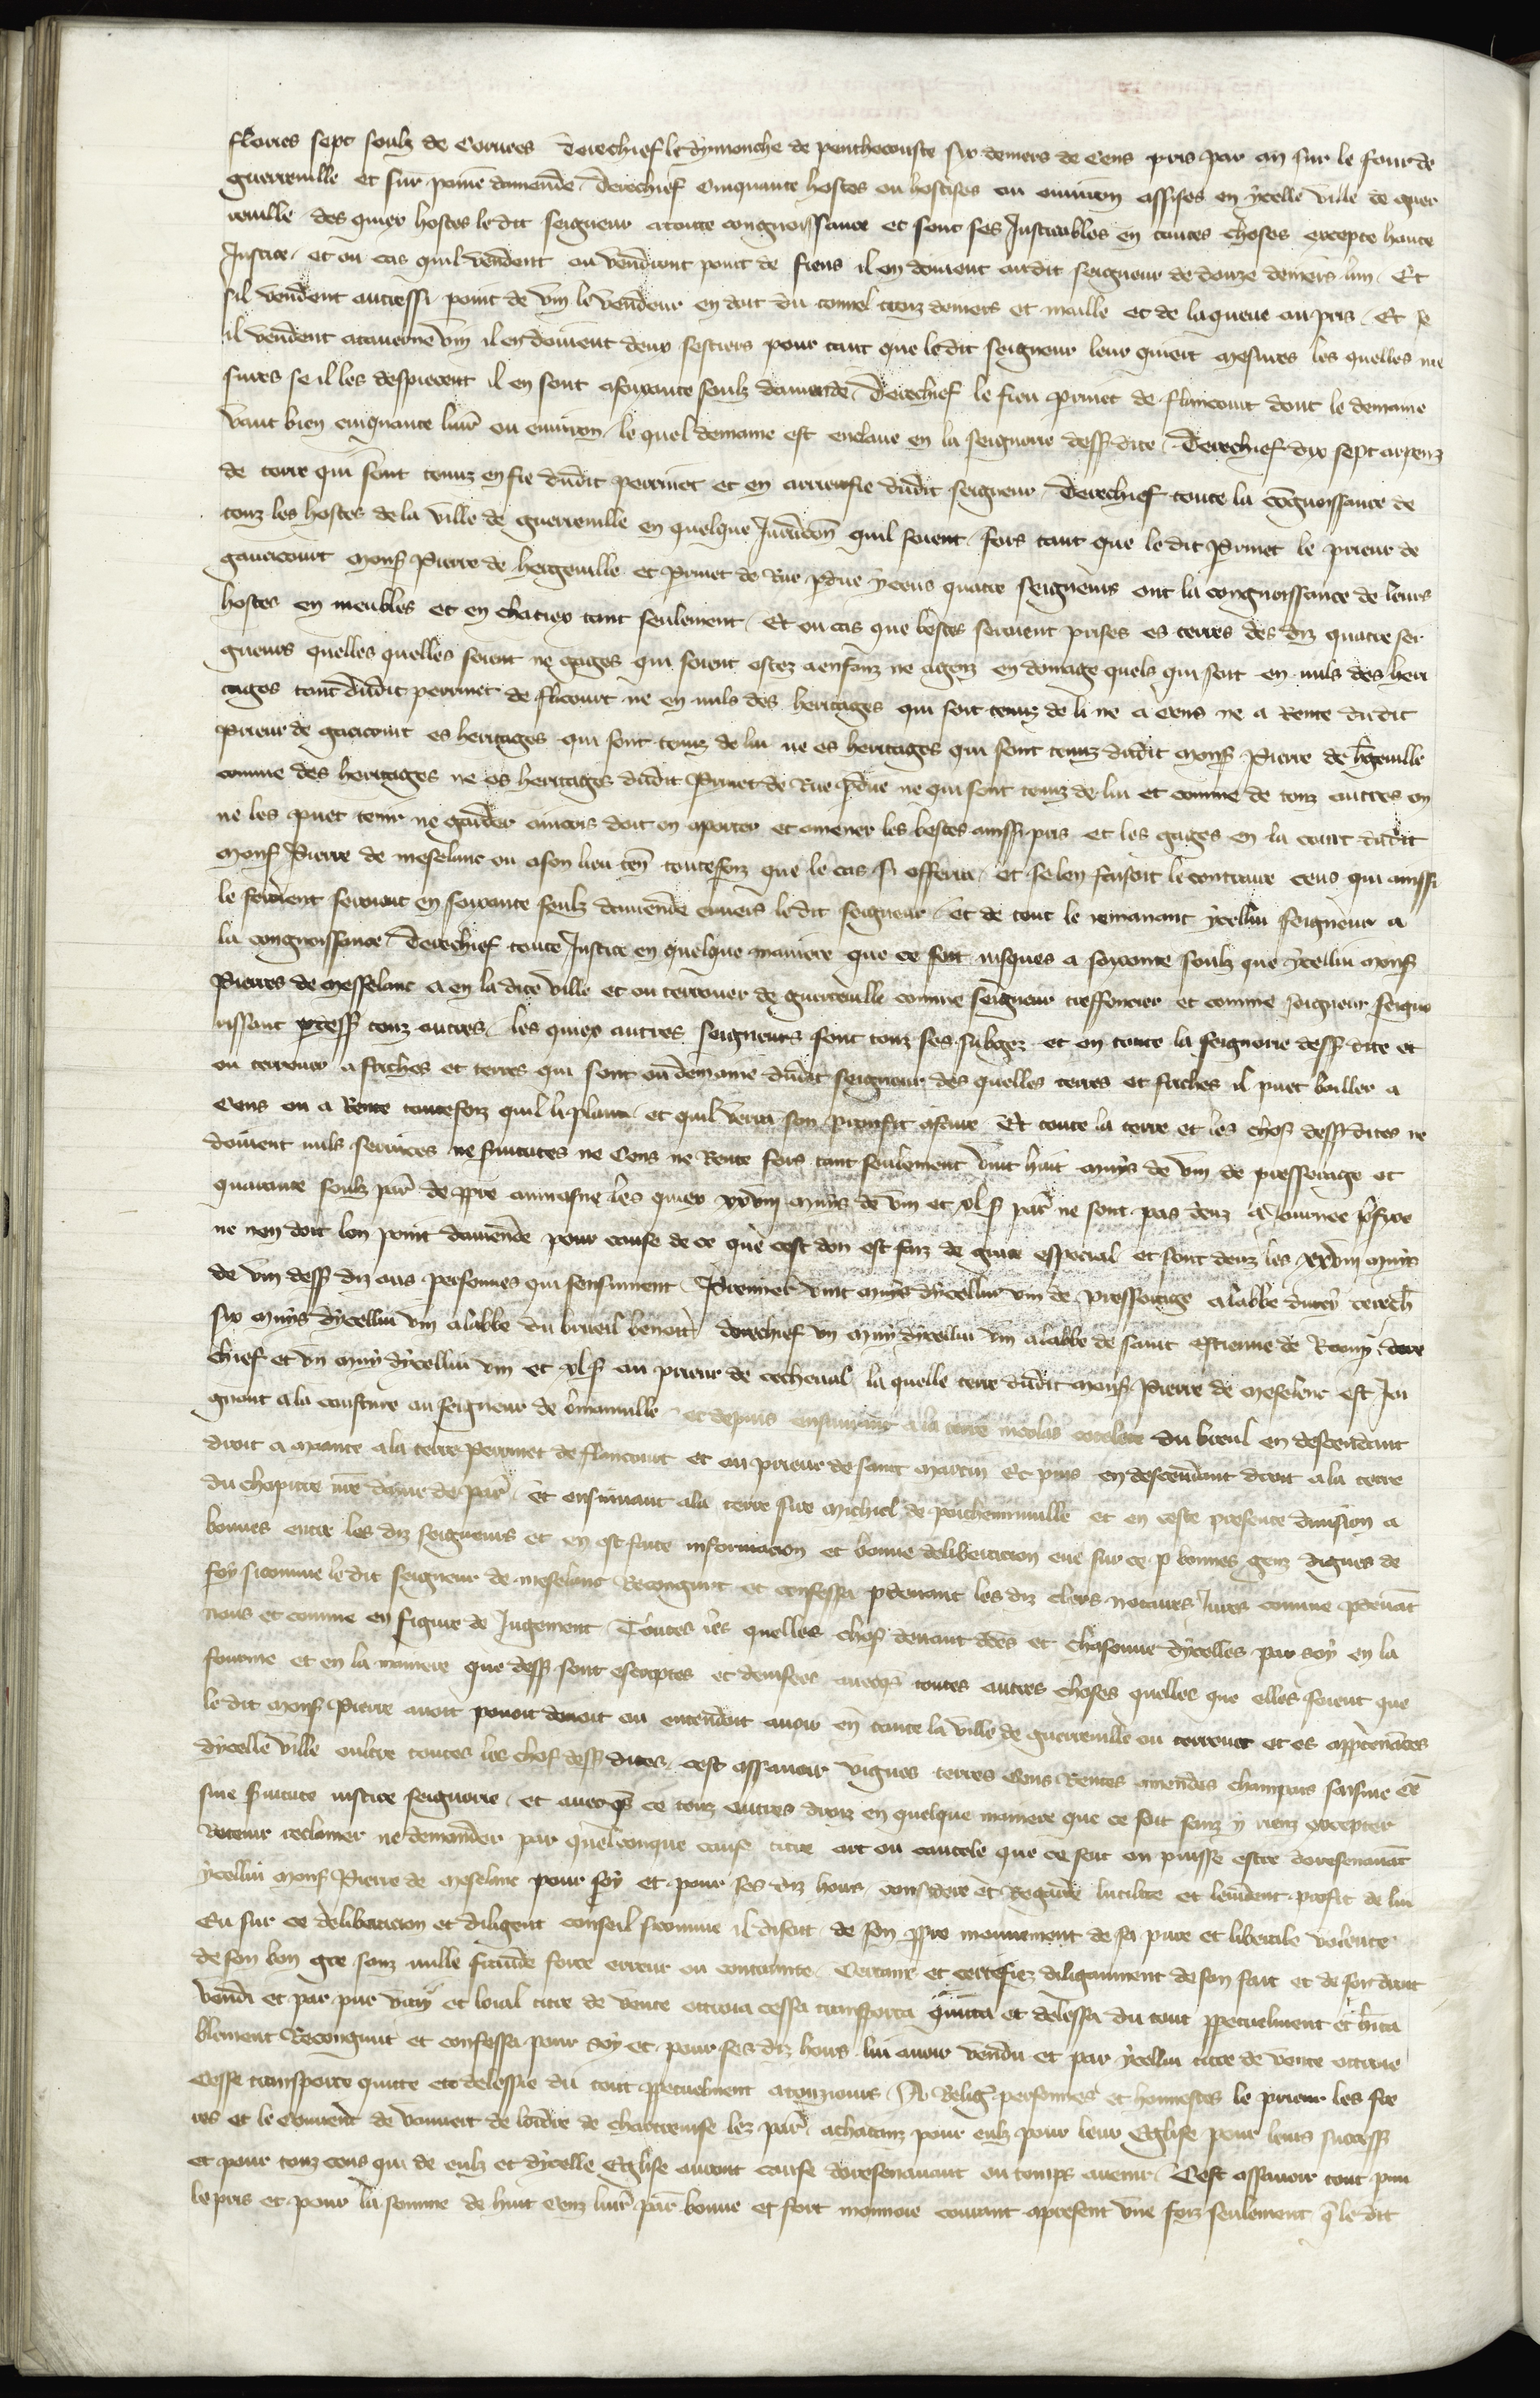 flories sept soulz de Corvees Derechief le dymenche de penthecouste six deniers de Cens pris par an sur le four de
guerreuille et sur peine damende. Derechief Cinquante hostes ou hostises ou environ assises en ycelle ville de guer
reuille des quiex hostes ledit seigneur a toute congnoissance et sont ses Justicables en toutes choses excepte haute
Justice. et ou cas quil vendent ou vendront point de fiens il en doivent audit seigneur de douze deniers lun. Et
sil vendent autressi point de vin le vendeur en doit du tonnel troiz deniers et maille et de la queue au pris. Et se
il vendent a taverne vin il en doivent deux sestiers pour tant que ledit seigneur leur quiert mesures les quelles me
sures se il les despiecent il en sont a soixante soulz damende. Derechief le fieu perrinet de flancourt dont le demaine
vaut bien cinquante livr ou environ. le quel demaine est enclave en la seignorie dessusdite. Derechief dix sept arpenz
de terre qui sont tenuz en fie dudit perrinet et en arrierefie dudit seigneur. Derechief toute la congnoissance de
touz les hostes de la ville de guerreuille en quelque Juridicon quil soient. fors tant que le dit Perrinet le prieur de
gaucourt Mons Pierre de hergeuille et Perrinet de Rue pdue yceus quatre seigneurs ont la congnoissance de leurs
hostes en meubles et en chatiex tant seulement. Et ou cas que bestes seroient prises es terres des diz quatre sei
gneurs quelles quelles soient ne gages qui soient ostez a enfanz ne a genz en domage quels qui soit en nuls des heri
tages tant dudit perrinet de flicourt ne en nuls des heritages qui soit tenuz de li ne a Cens ne a Rente dudit
Prieur de gaucourt es heritages qui sont tenuz de lui ne es heritages qui sont tenuz dudit Mons Pierre de hgeuille
comme des heritages ne es heritages dudit Perrinet de Rue pdue ne qui sont tenuz de lui et comme de touz autres on
ne les puet tenir ne garder aincois doit on aporter et amener les bestes ainssi pris et les gages en la court dudit
Mons Pierre de meselanc ou a son lieu ten toutefoiz que le cas si offerra. et se len faisoit le contraire ceus qui ainssi
le feroient seroient en soixante soulz damende envers le dit seigneur. et de tout le remanant ycellui seigneur a
la congnoissance. Derechief toute Justice en quelque maniere que ce soit jusques a soixante soulz que ycellui Mons
Pierres de Messelanc a en la dite ville et ou terrouer de guerreuille comme seigneur treffoncier et comme seigneur seigno
rissant pdess touz autres. les quiex autres seigneurs sont touz ses subgez et en toute la seignorie dess dite et
ou terrouer a friches et terres qui sont ou demaine dudit seigneur des quelles terres et friches il puet bailler a
Cens ou a Rente toutefoiz quil li plaira et quil verra son proufit a faire Et toute la terre et les chos dess dites ne
doivent nuls services ne servitutes ne Cens ne Rente fors tant seulement vint huit muys de vin de pressorage et
quarante soulz par de ppre aumosne les quiex xxviij muys de vin et xl s par ne sont pas deuz a Journee pfixe
ne nen doit lon point damende pour cause de ce que cest don est faiz de grace especial et sont deuz les xxviij muis
de vin dess diz aus personnes qui sensuivent. Premier vint muys dycellui vin de pressorage a labbe divry derech
six muys dycellui vin a labbe du brueil benoit derechief vn muy dycellui vin a labbe de saint Estienne de Roony. dere
chief et vn muy dycellui vin et xl s au prieur de cecheval. la quelle terre dudit Mons Pierre de Meselenc est Joi
gnant a la cousture au seigneur de Osmanuille et depuis ensuivant a la terre nicolas du breul en descendant
droit a Mante a la terre Perrinet de flancourt et au prieur de saint Martin Et puis en descendant droit a la terre
du chapitre nre dame de par. Et ensuivant a la terre sire Michiel de et en ceste presente division a
bonnes entre les diz seigneurs et en est faite informacion et bonne deliberacion eue sur ce p bonnes genz dignes de
foy sicomme le dit seigneur de meselant Recongnut et confessa pdevant les diz clers notaires Jurez comme pdevat
nous et comme en figure de Jugement Toutes les quelles chos devant dees et chascune dycelles par soy en la
fourme et en la maniere que dess sont escriptes et devisees avecqs toutes autres choses quelles que elles soient que
le dit Mons Pierre avoit pouoit devoit ou entendoit avoir en toute la ville de guerreuille ou terrouer et es appartenances
dycelle ville oultre toutes les chos dess dites. cest assavoir vignes terres Cens Rentes amendes champars saisine et
sine servitute justice seignorie. et avecqs ce touz autres droiz en quelque maniere que ce soit sanz y riens excepter
Retenir reclamer ne demander par quelconque cause titre art ou cautele que ce soit ou puisse estre doresenavat
ycellui Mons Pierre de Meselanc pour soy et pour ses diz hoirs considere et Regarde lutilite et levident profit de lui
Eu sur ce deliberacion et diligent conseil sicomme il disoit de son ppre mouvement de sa pure et liberale volente
de son bon gre sanz nulle fraude force erreur ou contrainte. Certain et certefiez diligaument de son fait et de son droit
vendi et par pur vray et loial titre de vente ottroia cessa transporta quitta et delessa du tout ppetuelment et hrita
blement Recongnut et confessa pour soy et pour ses diz hoirs lui avoir vendu et par ycellui titre de vente ottroie
Cesse transporte quitte et delessie du tout ppetuelment a touzjours. A Relig personnes et honnestes le prieur les fre
res et le Couvent de vauvert de lordre de chartreuse lez par achatanz pour eulz pour leur Eglise pour leurs success
et pour touz ceus qui de eulz et dycelle Eglise auront cause doresenavant ou temps avenir. Cest assavoir tout pmi
le pris et pour la somme de huit Cenz livr par bonne et fort monnoie courant apresent vne foiz seulement q le dit